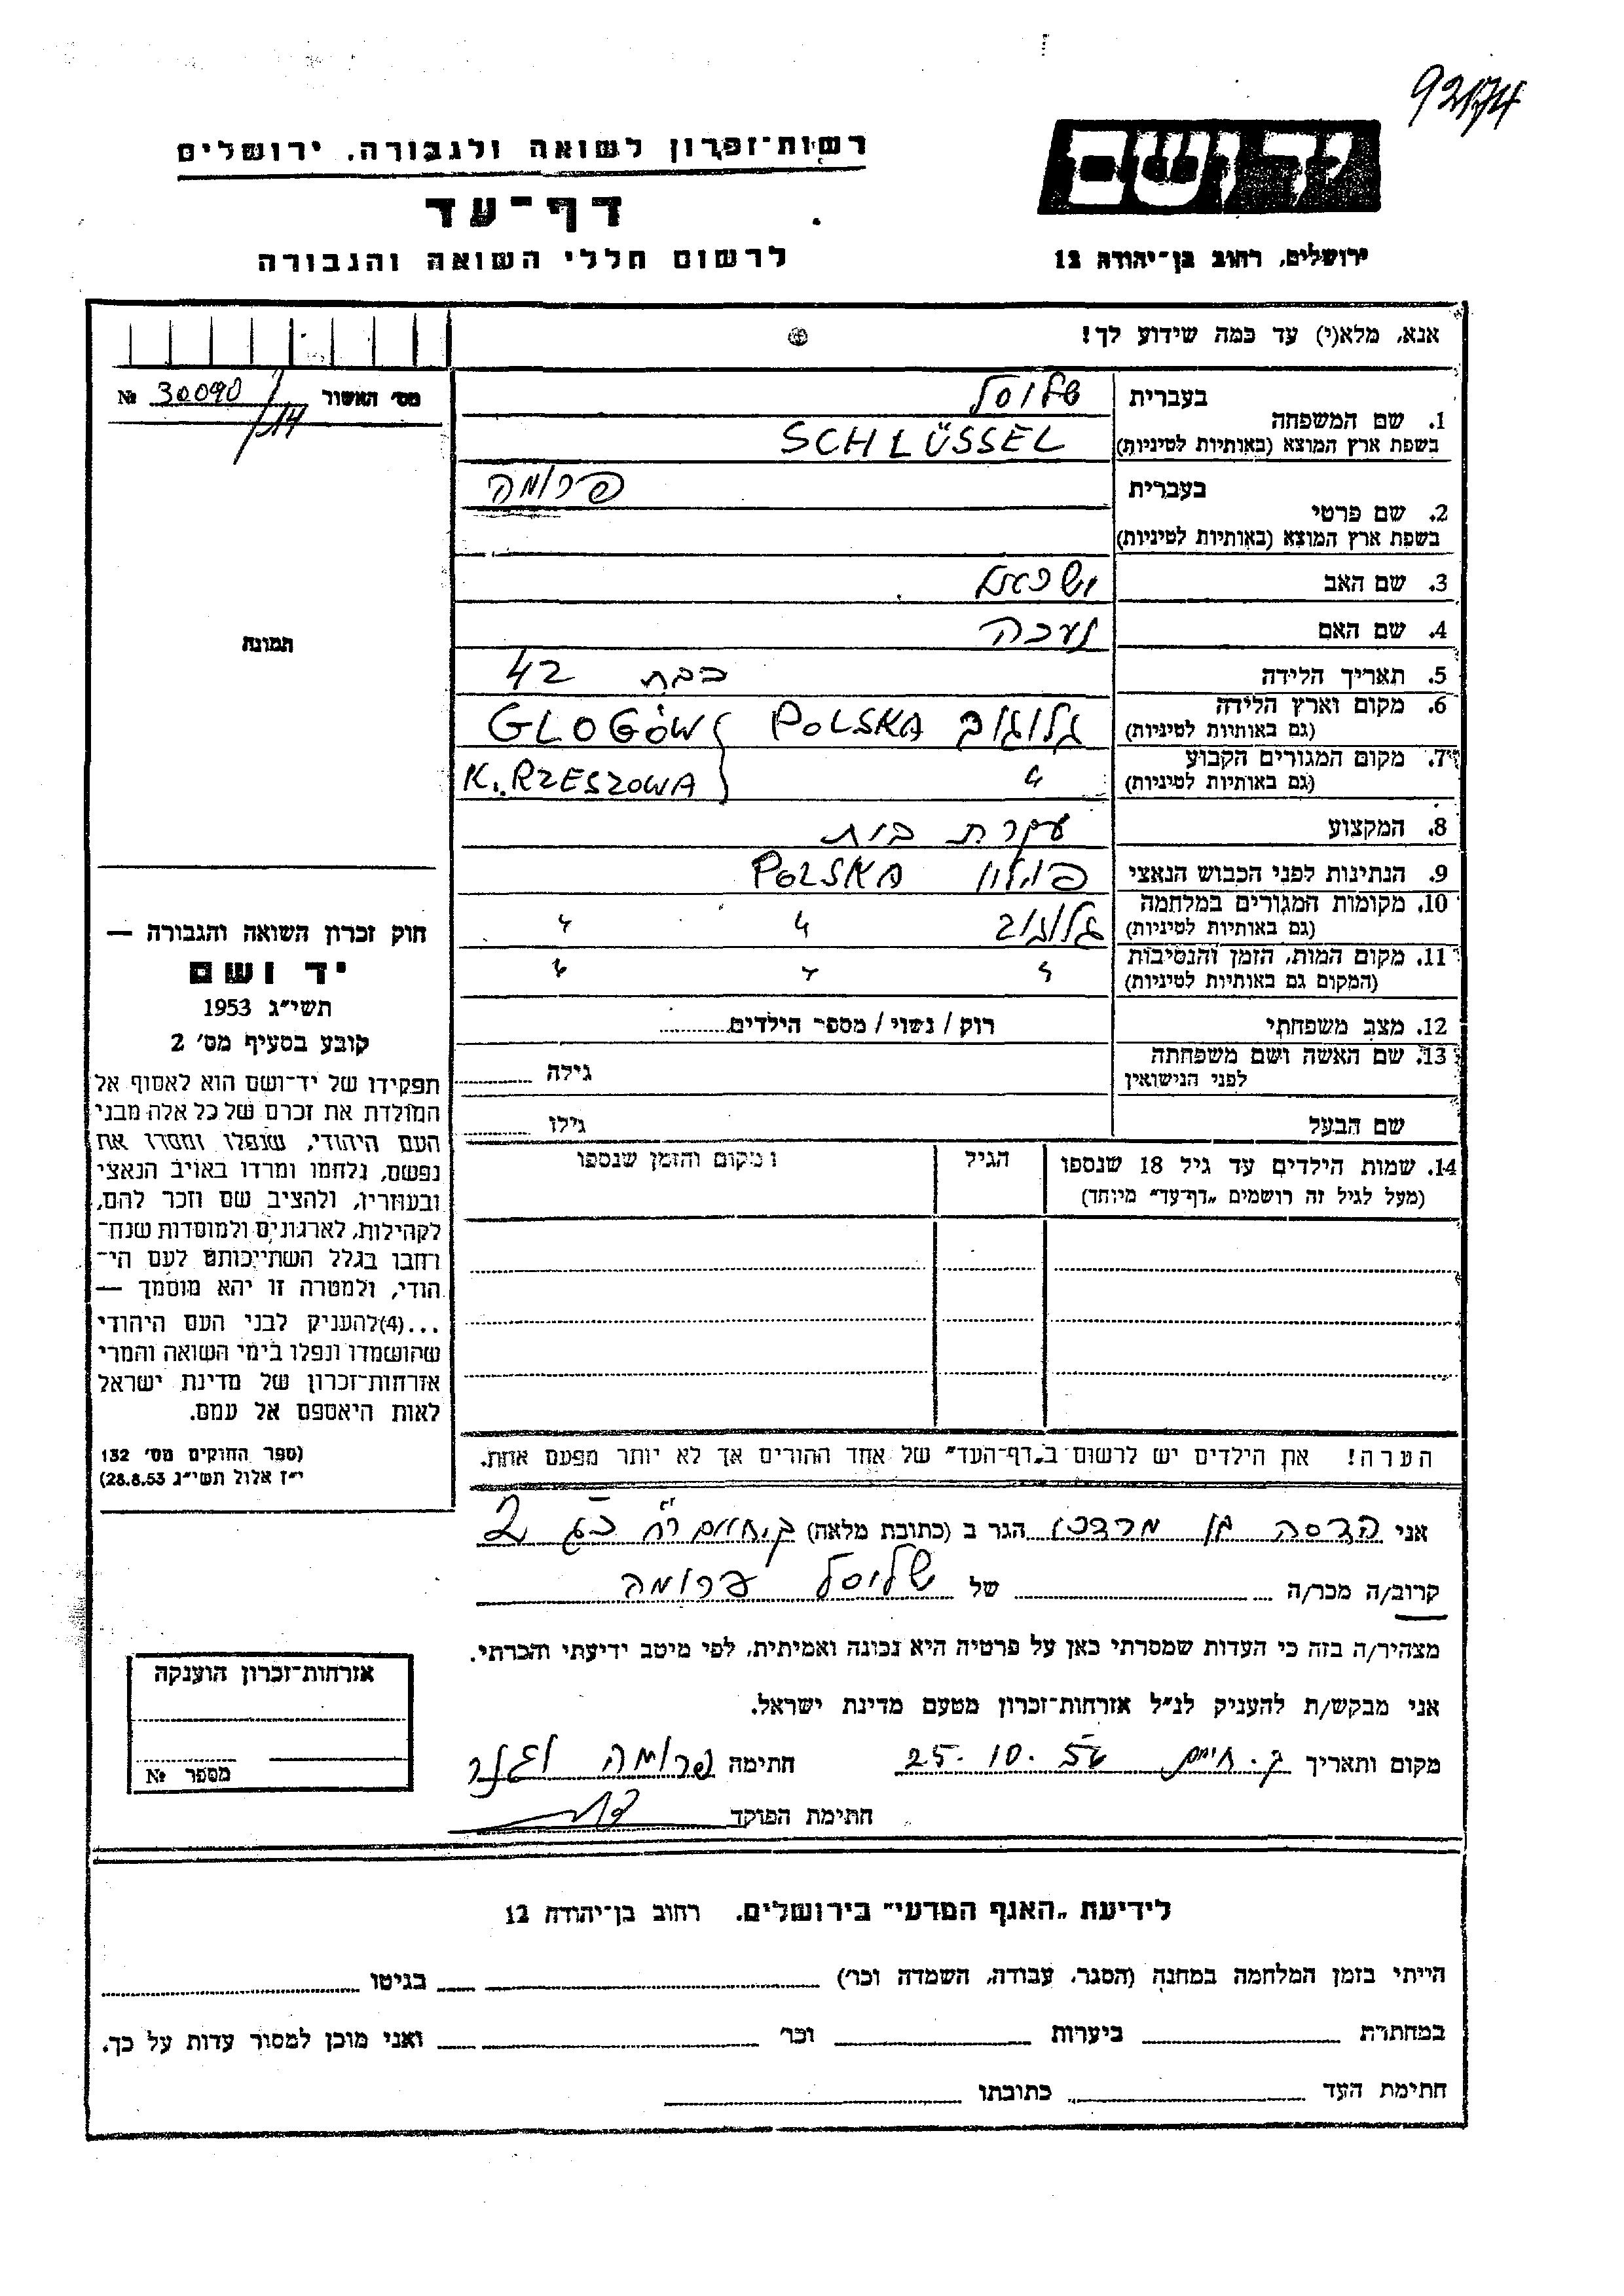 92174
יד ושם
ירושלים, רחוב בן־יהודה 12
רשות־זכרון לשואה ולגבורה, ירושלים
דף־עד
לרשום חללי השואה והגבורה
אנא, מלא(י) עד כמה שידוע לך!
מס׳ האשור № 30090
1. שם המשפחה
בעברית שלוסל
בשפת ארץ המוצא (באותיות לטיניות) SCHLÜSSEL
2. שם פרטי
בעברית פרומה
בשפת ארץ המוצא (באותיות לטיניות)
3. שם האב
4. שם האם
5. תאריך הלידה כבת 42
6. מקום וארץ הלידה (גם באותיות לטיניות) גלוגוב POLSKA GLOGÓW
7. מקום המגורים הקבוע (גם באותיות לטיניות) " K. RZESZOWA
8. המקצוע עקרת בית
9. הנתינות לפני הכבוש הנאצי פולין POLSKA
10. מקומות המגורים במלחמה (גם באותיות לטיניות) גלוגוב " "
11. מקום המות, הזמן והנסיבות (המקום גם באותיות לטיניות) " " "
12. מצב משפחתי רוק / נשוי / מספר הילדים
13. שם האשה ושם משפחתה לפני הנישואין גילה
שם הבעל גילו
14. שמות הילדים עד גיל 18 שנספו (מעל לגיל זה רושמים „דף־עד” מיוחד)
הגיל
מקום והזמן שנספו
תמונה
חוק זכרון השואה והגבורה —
יד ושם
תשי״ג 1953
קובע בסעיף מס׳ 2
תפקידו של יד־ושם הוא לאסוף אל
המולדת את זכרם של כל אלה מבני
העם היהודי, שנפלו ומסרו את
נפשם, נלחמו ומרדו באויב הנאצי
ובעוזריו, ולהציב שם וזכר להם,
לקהילות, לארגונים ולמוסדות שנח־
רבו בגלל השתייכותם לעם הי־
הודי, ולמטרה זו יהא מוסמך —
...(4)להעניק לבני העם היהודי
שהושמדו ונפלו בימי השואה והמרי
אזרחות־זכרון של מדינת ישראל
לאות היאספם אל עמם.
(ספר החוקים מס׳ 132
י״ז אלול תשי״ג 28.8.53)
הערה! את הילדים יש לרשום ב„דף־העד” של אחד ההורים אך לא יותר מפעם אחת.
אני הדסה בן מרדכי הגר ב (כתובת מלאה) ק. חיים
קרוב/ה מכר/ה של שלוסל פרומה
מצהיר/ה בזה כי העדות שמסרתי כאן על פרטיה היא נכונה ואמיתית, לפי מיטב ידיעתי והכרתי.
אני מבקש/ת להעניק לנ״ל אזרחות־זכרון מטעם מדינת ישראל.
מקום ותאריך ק. חיים 25.10.56 חתימה פרומה
חתימת הפוקד
אזרחות־זכרון הוענקה
מספר №
לידיעת „האגף המדעי” בירושלים, רחוב בן־יהודה 12
הייתי בזמן המלחמה במחנה (הסגר, עבודה, השמדה וכר׳) בגיטו
במחתרת ביערות וכר׳ ואני מוכן למסור עדות על כך.
חתימת העד כתובתו